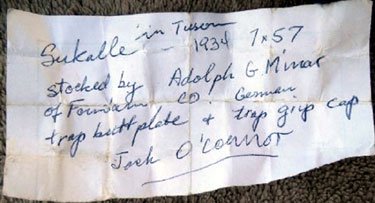 Sukalle in Tuson
— 1934 7x57
stocked by Adolph G. Minar
of Fountain CO German
trap buttplate & trap grip cap
Jack O'Connor